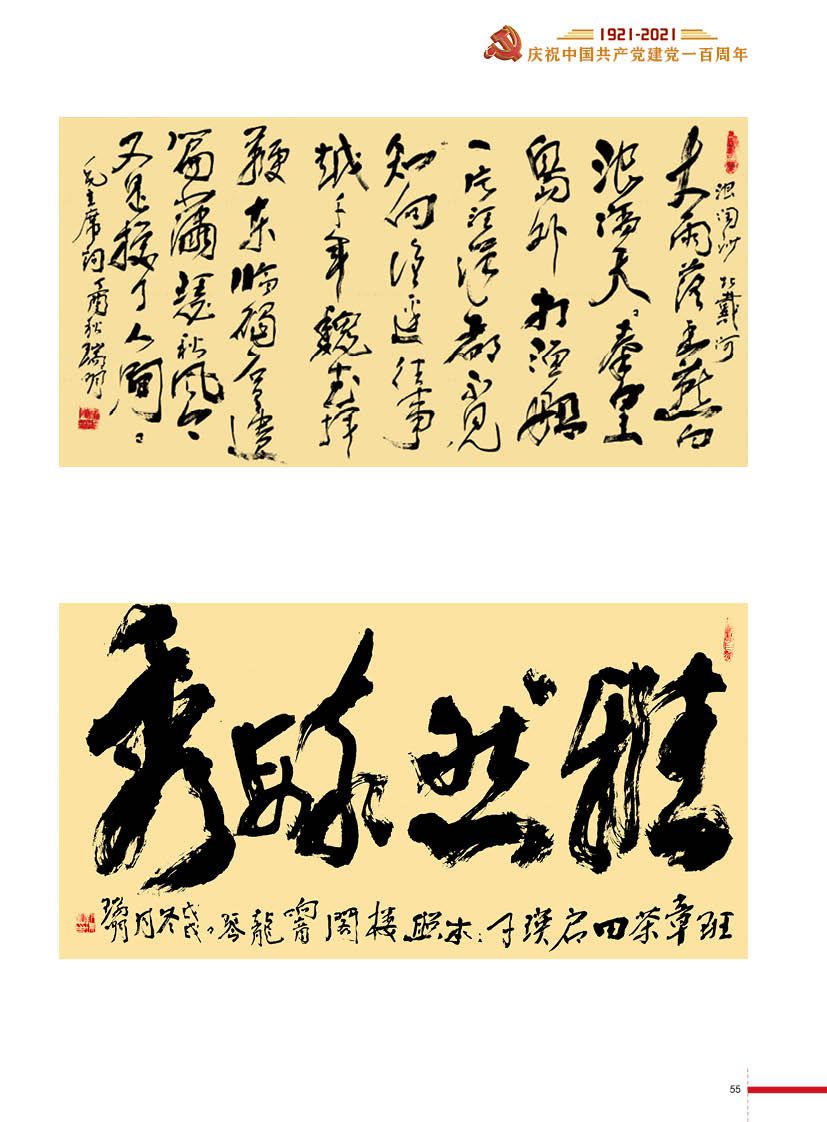 1921-2021
庆祝中国共产党建党一百周年
浪淘沙 北戴河
大雨落幽燕白
浪滔天秦皇
岛外打渔船
一片汪洋都不见
知向谁边往事
越千年魏武挥
鞭东临碣石有遗
篇潇瑟秋风今
又是换了人间
毛主席词 丁酉秋 瑞明
雅然 秀
班章茶田启 子 木 熙 楼 阁 龍 琴 戊戌冬月 瑞明
55